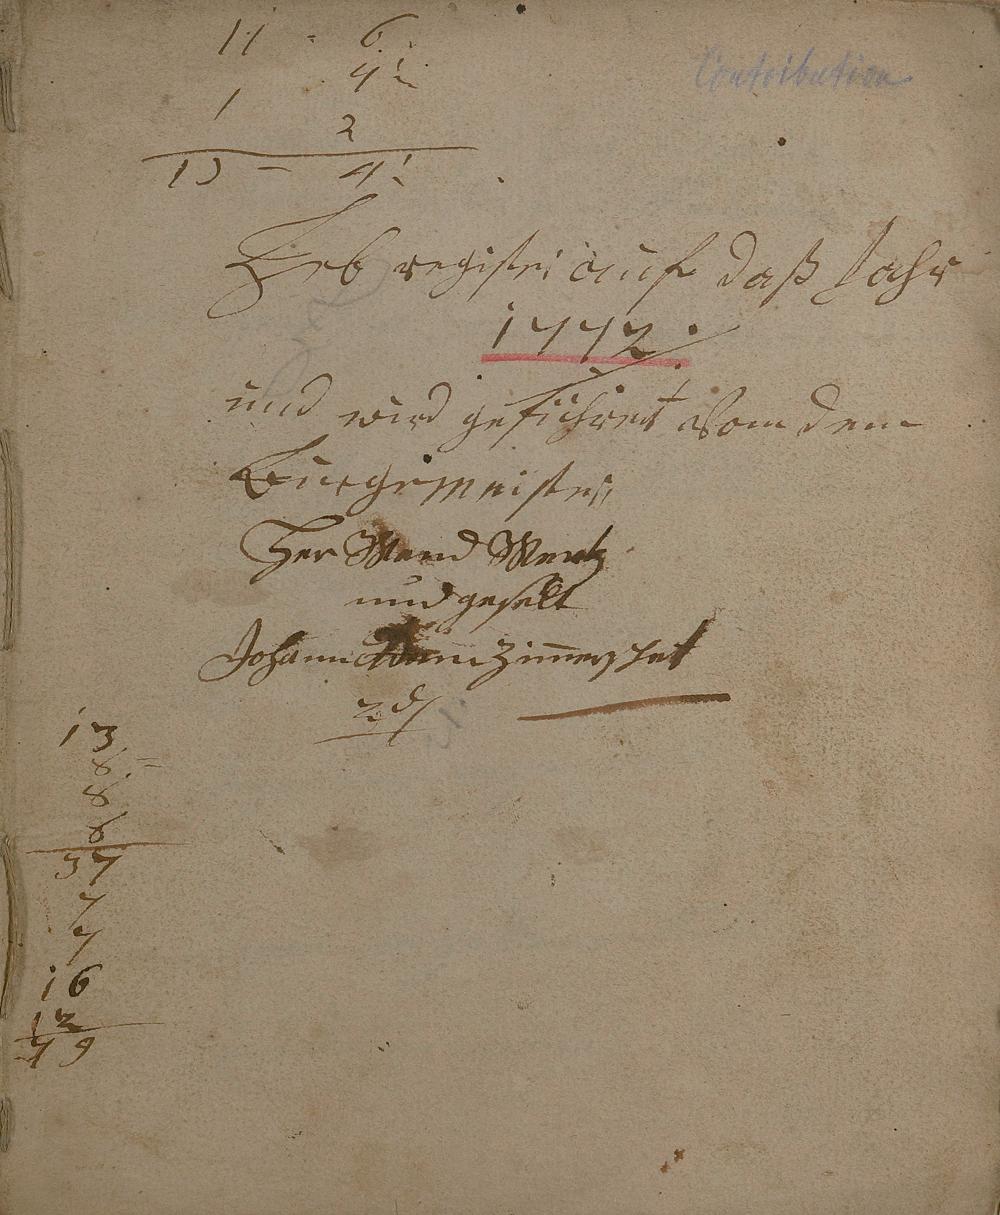 11 - 6
4
1
2
13 - 4
Contribution
Heb register auf daß Jahr
1772
und wird geführet Vom dem
Burgermeister
Her Wend Wentz
und geselt
Johann Zimmer
13
8
8
8
37
7
7
16
12
79